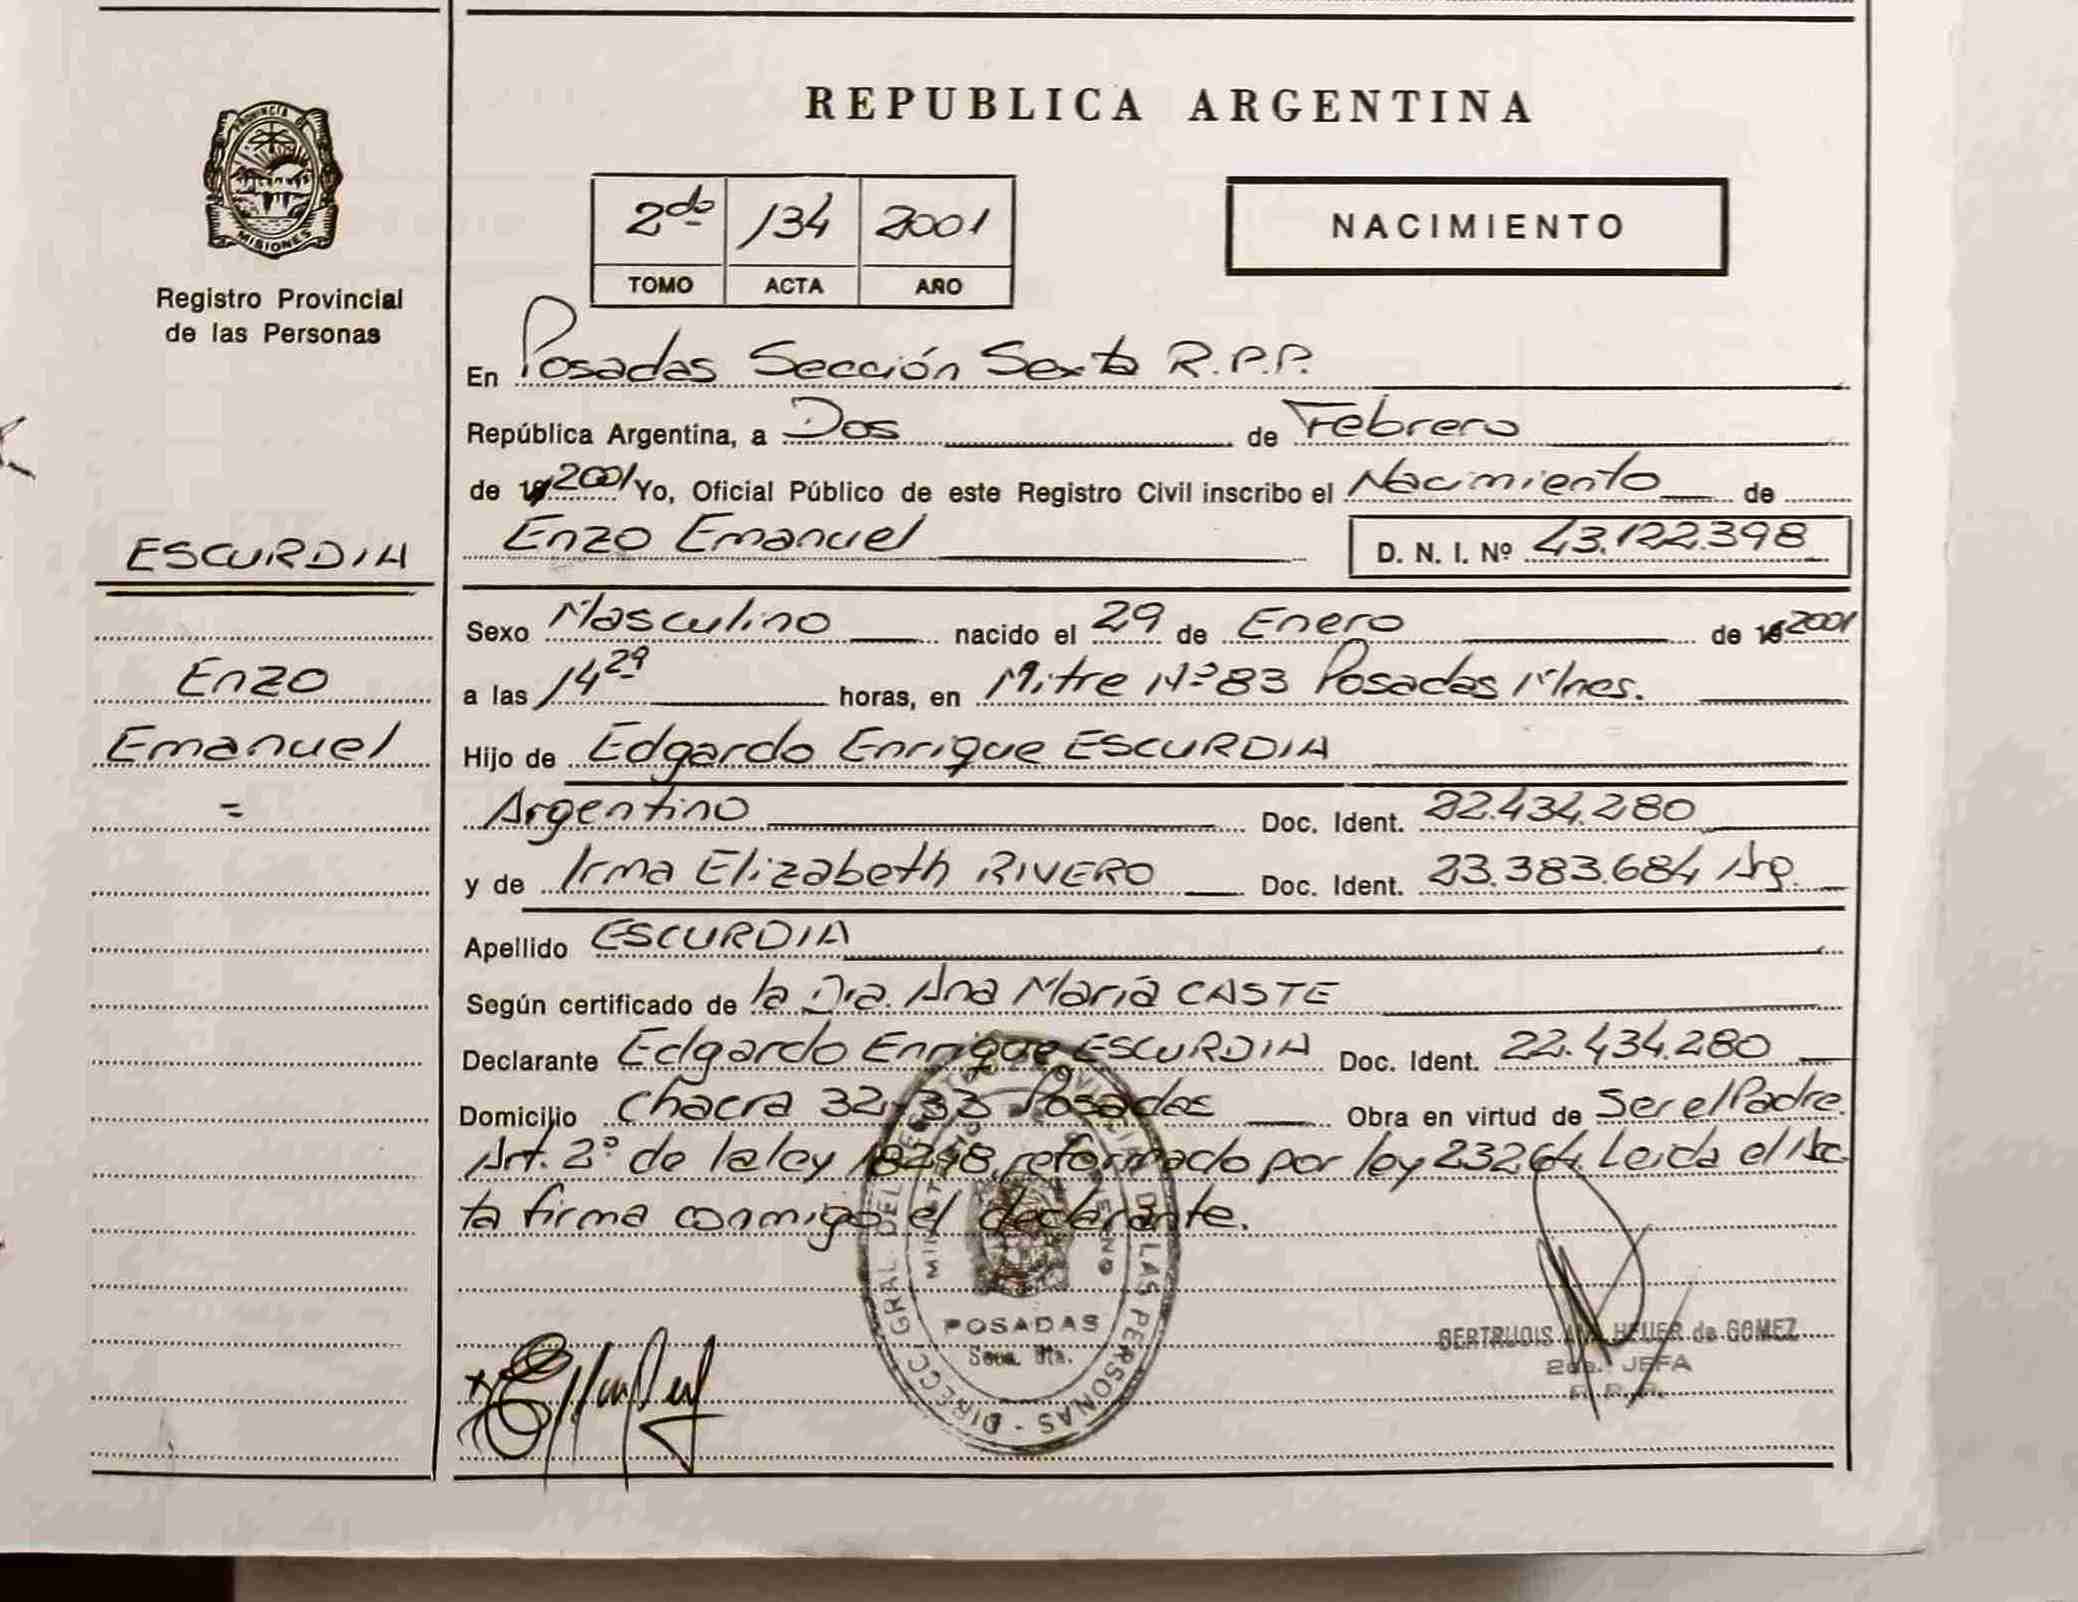 REPUBLICA ARGENTINA
PROVINCIA DE
MISIONES
Registro Provincial
de las Personas
2do 134 2001
TOMO ACTA AÑO
NACIMIENTO
En Posadas Sección Sexta R.P.P.
República Argentina, a Dos de Febrero
de 19 2001 Yo, Oficial Público de este Registro Civil inscribo el Nacimiento de
ESCURDIA
Enzo Emanuel D. N. I. Nº 43.122.398
Sexo Masculino nacido el 29 de Enero de 19 2001
Enzo
a las 14 29 horas, en Mitre Nº 83 Posadas Mnes.
Emanuel
Hijo de Edgardo Enrique ESCURDIA
=
Argentino Doc. Ident. 22.434.280
y de Irma Elizabeth RIVERO Doc. Ident. 23.383.684 Arg.
Apellido ESCURDIA
Según certificado de la Dra. Ana María CASTE
Declarante Edgardo Enrique ESCURDIA Doc. Ident. 22.434.280
Domicilio Chacra 32-33 Posadas Obra en virtud de Ser el Padre.
Art. 2º de la ley 18248, reformado por ley 23264. Leida el Ac
ta firma conmigo el declarante.
DIRECC. GRAL DEL REGISTRO PROVINCIAL DE LAS PERSONAS
MINISTERIO DE GOBIERNO
POSADAS
Secc. 6ta.
GERTRUDIS HEUER de GOMEZ
2da. JEFA
R. P. P.